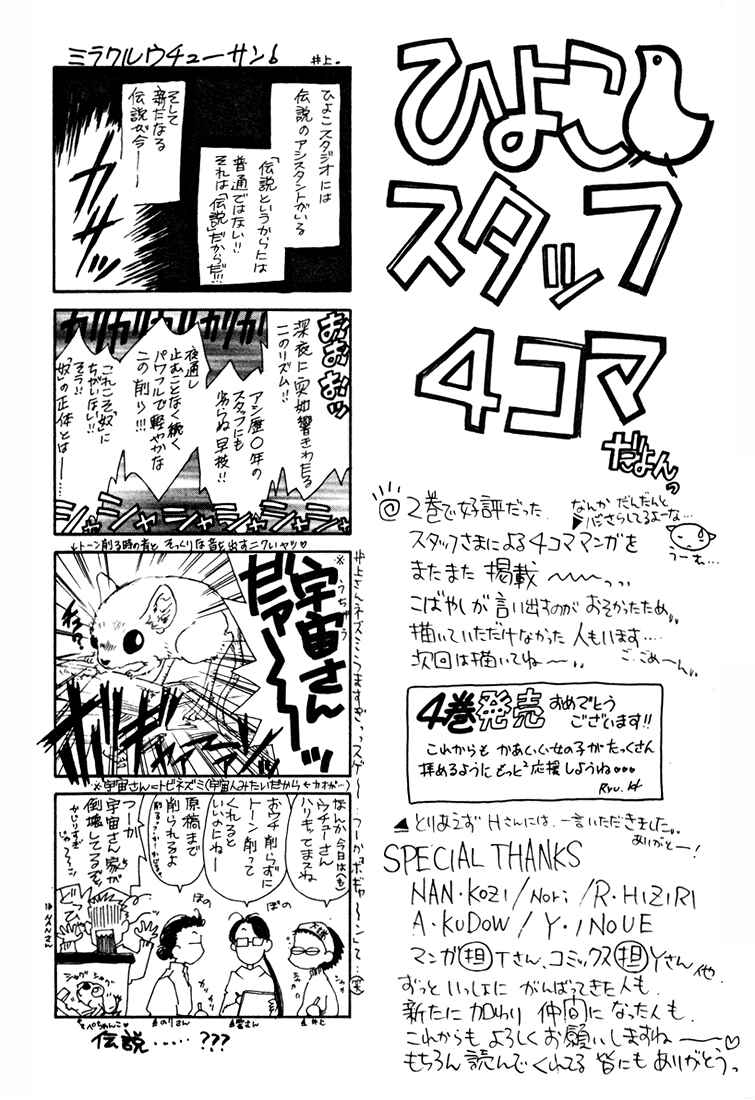 ひよこ
スタッフ
4コマ
だよんっ
◎2巻で好評だった
なんか だんだんと
バラさらしてるよーな…
うーむ…
スタッフさまによる4コママンガを
またまた 掲載〜〜〜っっ
こばやしが 言い出すのが おそかったため〃
描いていただけなかった 人もいます‥‥
次回は描いてね〜〜〃
ご、ごめーん〃
4巻発売 おめでとう
ございます!!
これからも かあいい女の子が たっくさん
拝めるように もっと2 応援しようね♡♡♡
Ryu. H
▲とりあえず Hさんには、一言いただきました〃
ありがとー!
SPECIAL THANKS
NAN・KOZI/NORI/R・HIZIRI
A・KUDOW/Y・INOUE
マンガ担Tさん、コミックス担Yさん 他
ずっと いっしょに がんばってきた人も
新たに 加わり 仲間に なった人も
これからも よろしく お願いしますね〜〜♡
もちろん 読んで くれてる 皆にも ありがとうっ
ミラクルウチューサン♭
井上。
ひよこスタジオには
伝説のアシスタントがいる
「伝説というからには
普通ではない!!
それは「伝説」だからだ!!!
そして
新たなる
伝説が今――
カサッ
おおおおッ
ガリガリガリガリガリガリ
深夜に突如響きわたる
このリズム!!
アシ歴〇年の
スタッフにも
劣らぬ早技!!
夜通し
止むことなく続く
パワフルで軽やかな
この削り!!!
これこそ「奴」に
ちがいない!!
そう!!
「奴」の正体とは――
ジャシャジャシャジャシャ
↓トーン削る時の音と そっくりな音を出すニクいヤツ♡
※うちゅう
宇宙さんだァ〜〜〜ッ
井上さんネズミうますぎっっスゲ〜
つーか“ボギャ〜ン”って…(笑)
※宇宙さん=トビネズミ(宇宙人みたいだから
なんか今日は(も)
ウチューさん
ハリキッてますね
おウチ削らずに
トーン削って
くれると
いいのにねー
原稿まで
削られるよ
つーか
宇宙さん家が
倒壊してるぞっ
かじりすぎ
じゃ〜〜
ぼの
ぼの
ジャグ ジャグ
▲のりさん
▲皆さん
▲井上
伝説‥‥‥???